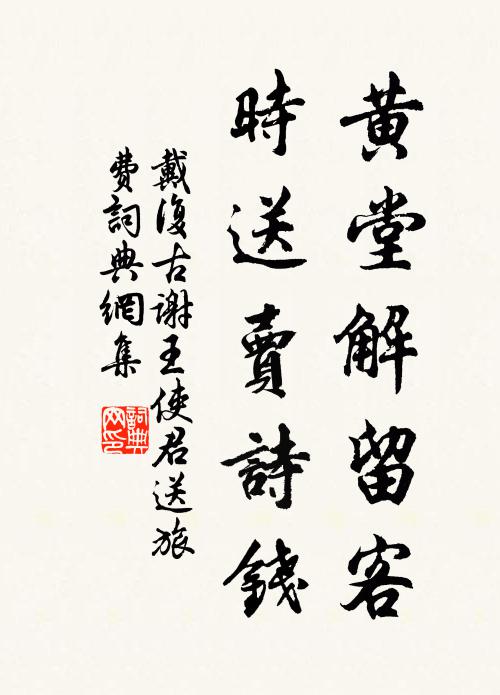 黄堂解留客
時送賣詩錢
戴復古謝王使君送旅
費詞典網集
詞典網印